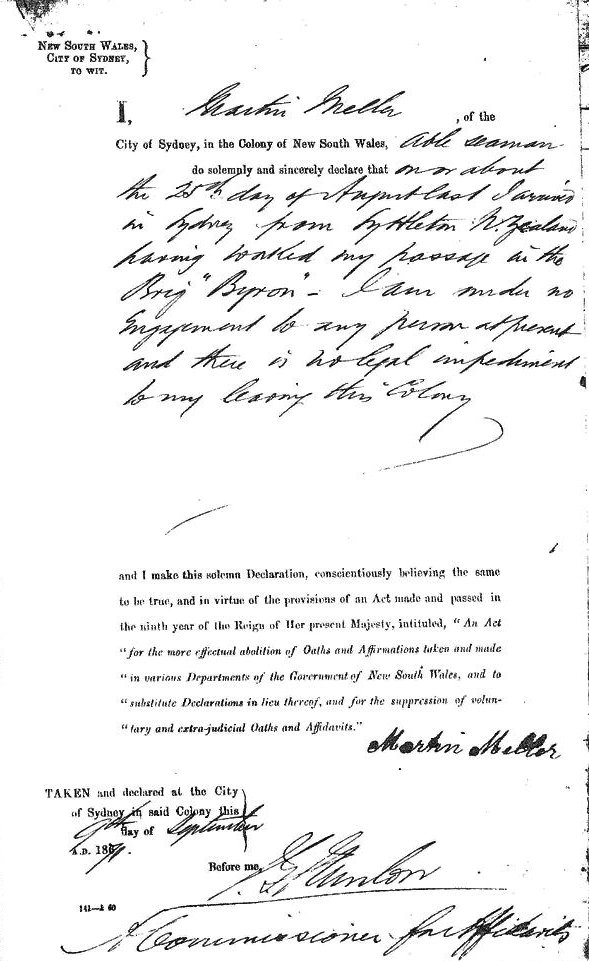 NEW SOUTH WALES,
CITY OF SYDNEY,
TO WIT.
I, Martin Meller, of the
City of Sydney, in the Colony of New South Wales, Able seaman
do solemnly and sincerely declare that on or about
the 25th day of August last I arrived
in Sydney from Lyttleton N. Zealand
having worked my passage in the
Brig "Byron" - I am under no
Engagement to any person at present
and there is no legal impediment
to my leaving this Colony
and I make this solemn Declaration, conscientiously believing the same
to be true, and in virtue of the provisions of an Act made and passed in
the ninth year of the Reign of Her present Majesty, intituled, "An Act
"for the more effectual abolition of Oaths and Affirmations taken and made
"in various Departments of the Government of New South Wales, and to
"substitute Declarations in lieu thereof, and for the suppression of volun-
"tary and extra-judicial Oaths and Affidavits."
Martin Meller
TAKEN and declared at the City
of Sydney in said Colony this
9th day of September
A.D. 18
Before me,
141—k 60
A Commissioner for Affidavits